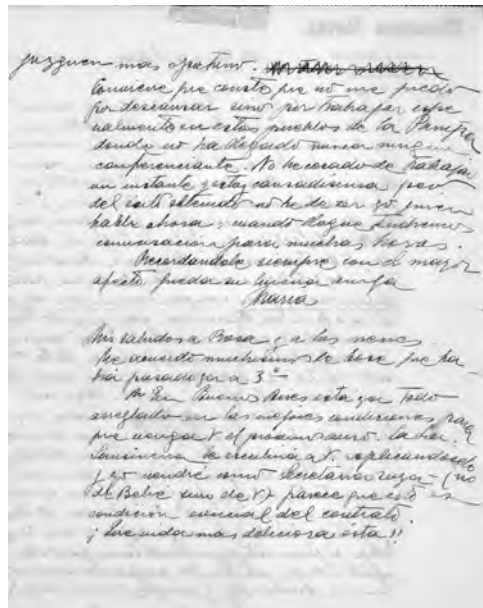 juzguen mas oportuno.
Conviene que conste que no me quedo
por descansar sino por trabajar espe
cialmente en estos pueblos de la Pampa
donde no ha llegado nunca ningun
conferenciante. No he cesado de trabajar
un instante y estoy cansadisima pero
del exito obtenido no he de ser yo quien
hable ahora; cuando llegue tendremos
conversación para muchas horas.
Recordandole siempre con el mayor
afecto queda su amiga
Maria
Mis saludos a Rosa y a las nenas
Me acuerdo muchisimo de Rose que ha-
bia pasado ya a 3º
En Buenos Aires esta ya todo
arreglado en las mejores condiciones para
que venga V. el proximo año. La
le escribirá a V. explicandoselo
y yo vendré como Secretaria suya (no
de Bebe sino de V) parece que esto es
condición esencial del contrato.
¡Que vida mas deliciosa ésta!!